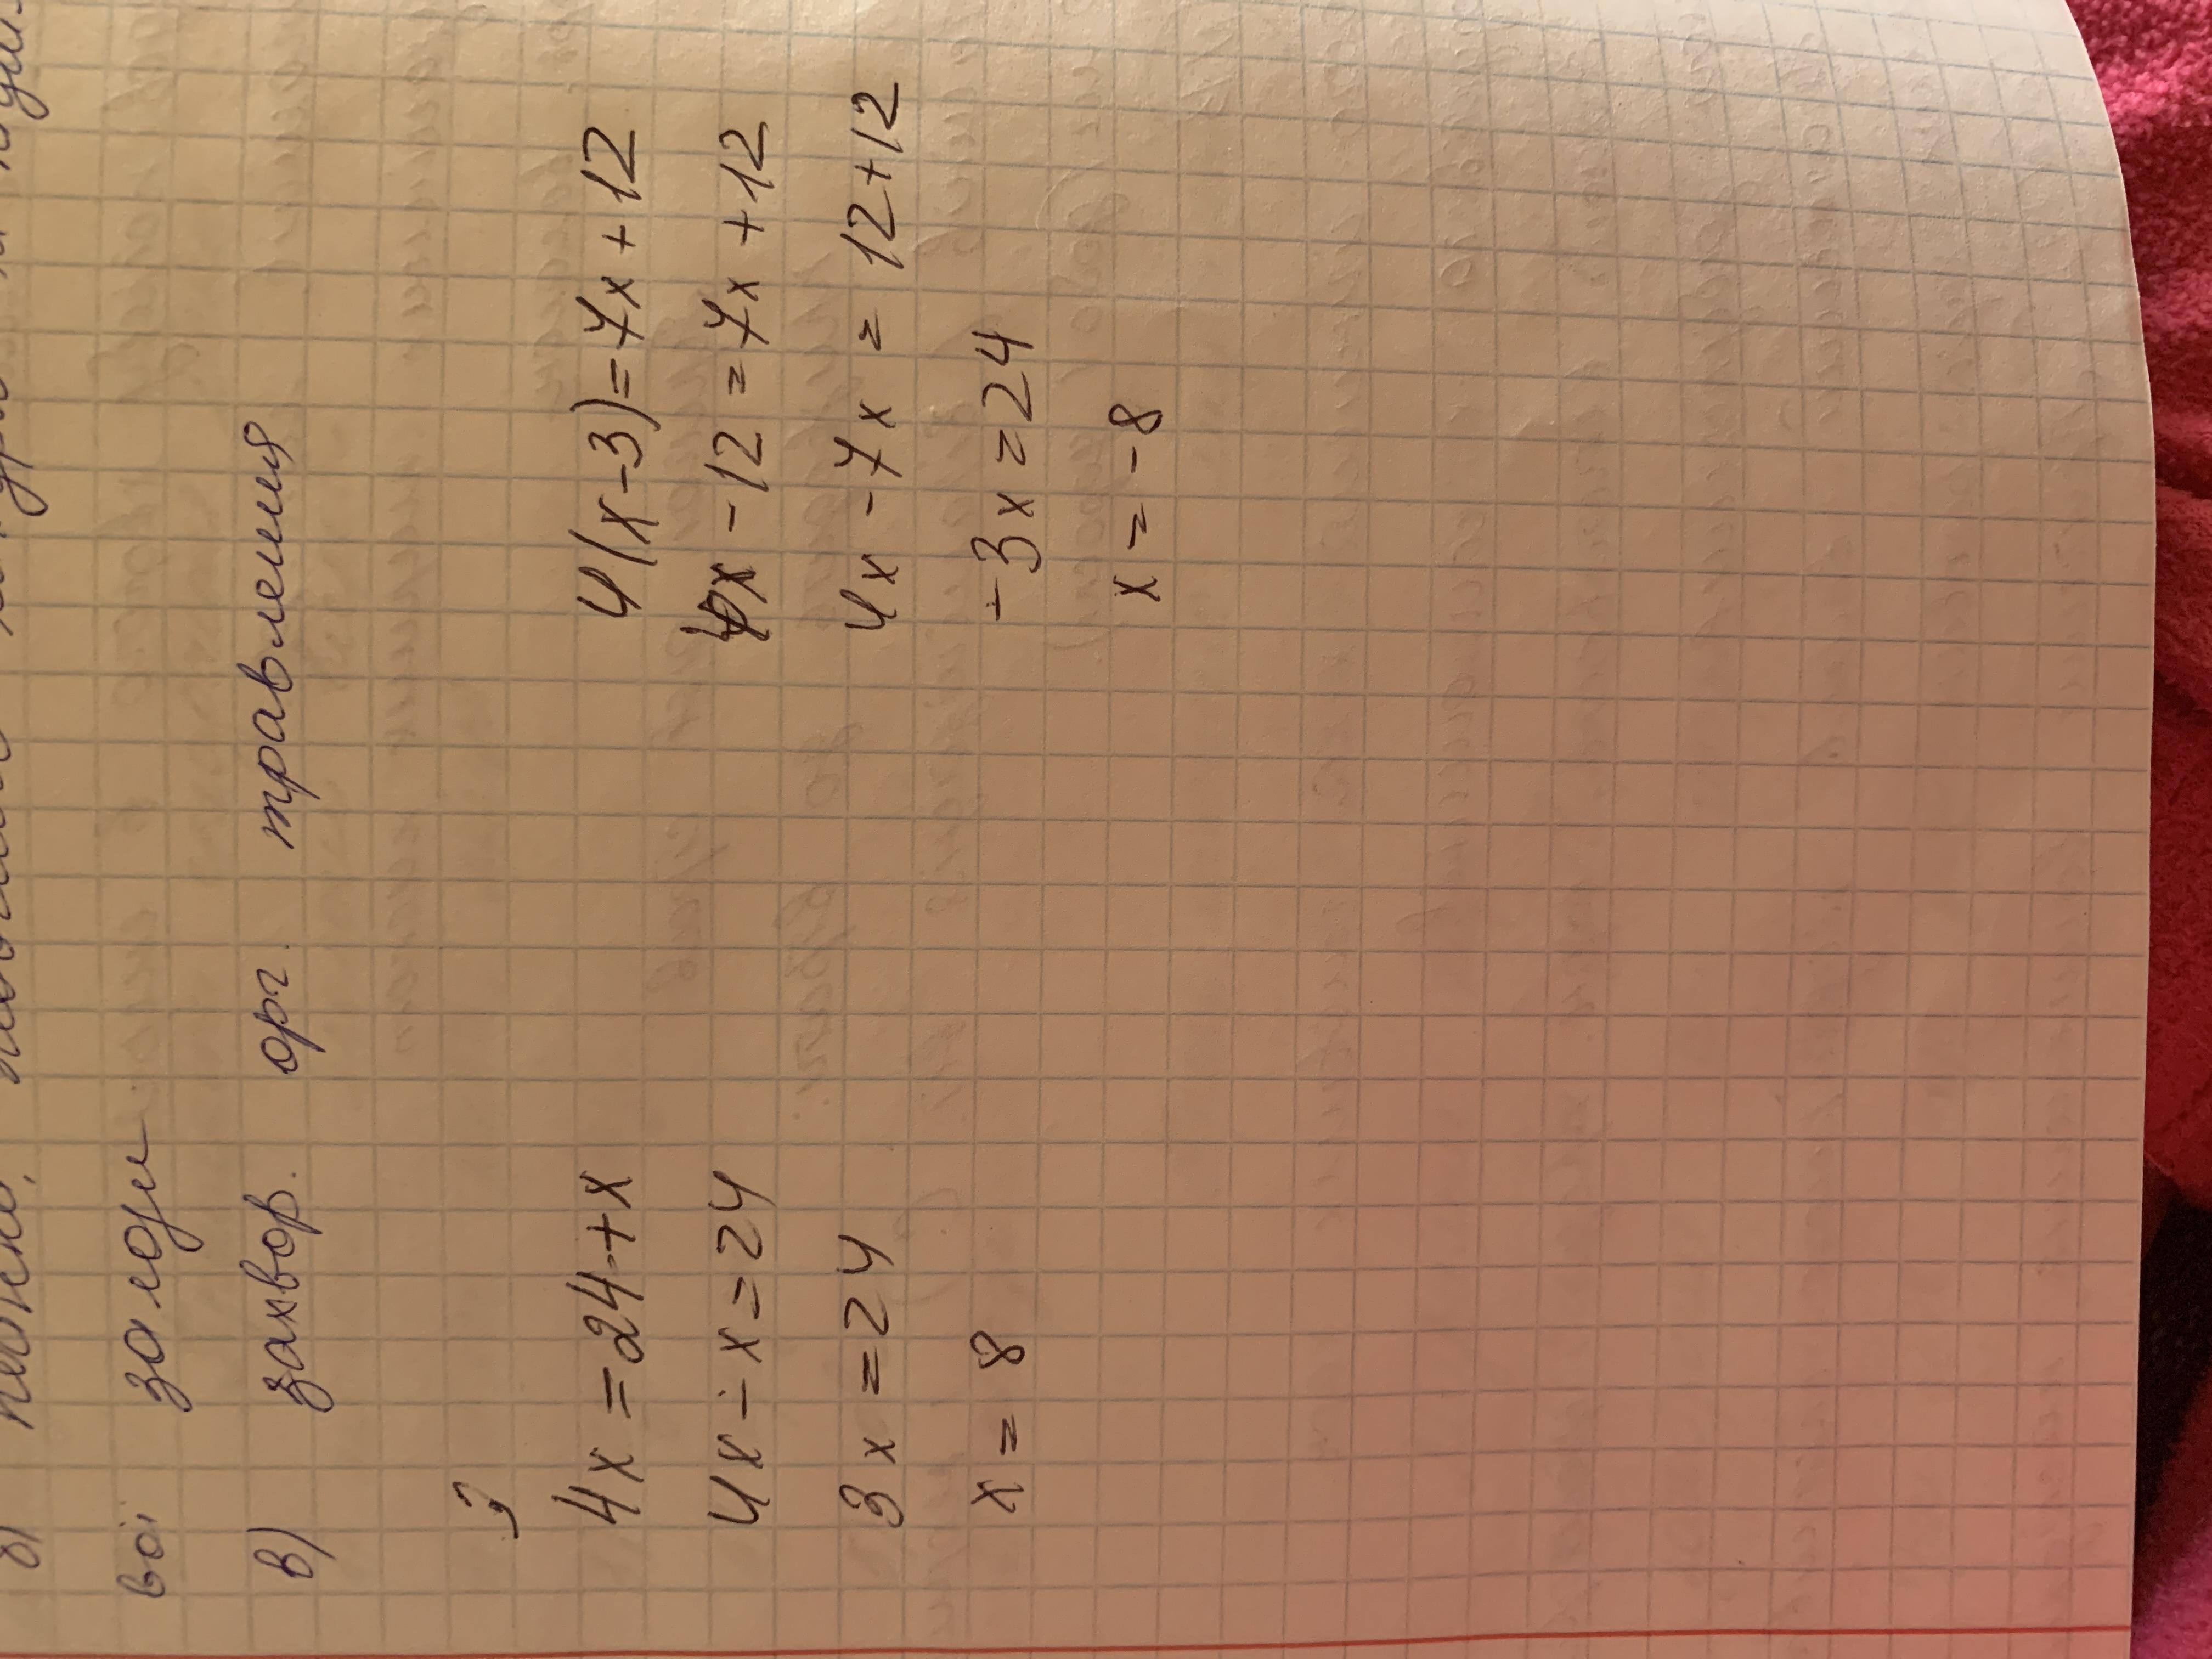 вої залози
в) захвор. орг. травлення
4x = 24 + x
4x - x = 24
3x = 24
x = 8
4(x-3) = 7x + 12
4x - 12 = 7x + 12
4x - 7x = 12 + 12
-3x = 24
x = -8